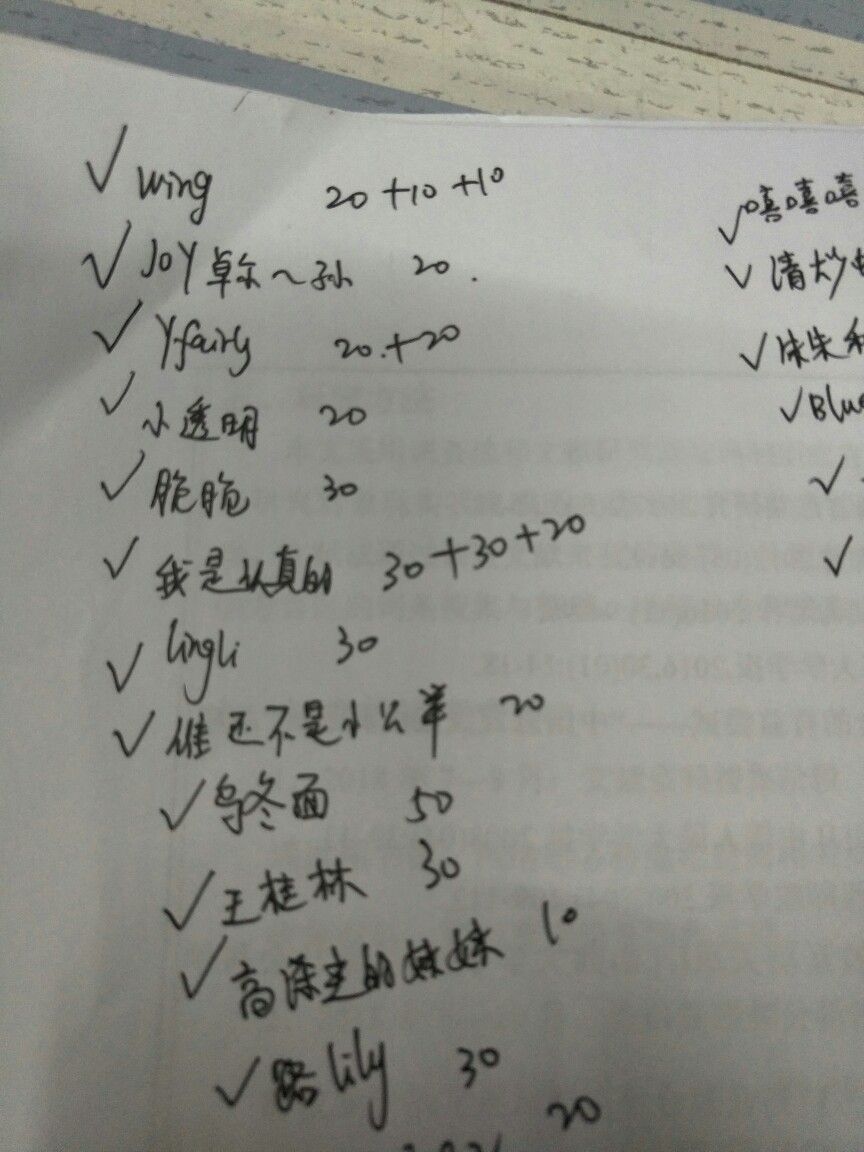 ✓ wing 20+10+10
✓ JOY卓尔～孙 20.
✓ Yfairy 20.+20
✓ 小透明 20
✓ 脆脆 30
✓ 我是认真的 30+30+20
✓ lingli 30
✓ 谁还不是小公举 20
✓ 乌冬面 50
✓ 王桂林 30
✓ 高深圭的妹妹 10
✓ 路lily 30
20
✓ 嘻嘻嘻
✓ 清炒
✓ 朱朱和
✓ Blue
✓
✓